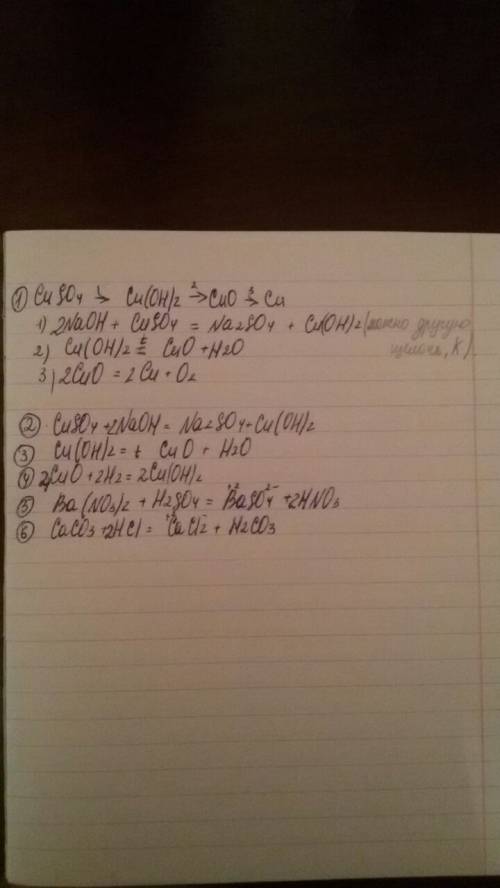 ① CuSO4 →1 Cu(OH)2 →2 CuO →3 Cu
1) 2NaOH + CuSO4 = Na2SO4 + Cu(OH)2 (можно другую
щелочь, K)
2) Cu(OH)2 =t CuO + H2O
3) 2CuO = 2Cu + O2
② CuSO4 + 2NaOH = Na2SO4 + Cu(OH)2
③ Cu(OH)2 = t CuO + H2O
④ 2CuO + 2H2 = 2Cu(OH)2
⑤ Ba(NO3)2 + H2SO4 = Ba⁺²SO4²⁻ + 2HNO3
⑥ CaCO3 + 2HCl = ⁺²CaCl2⁻ + H2CO3